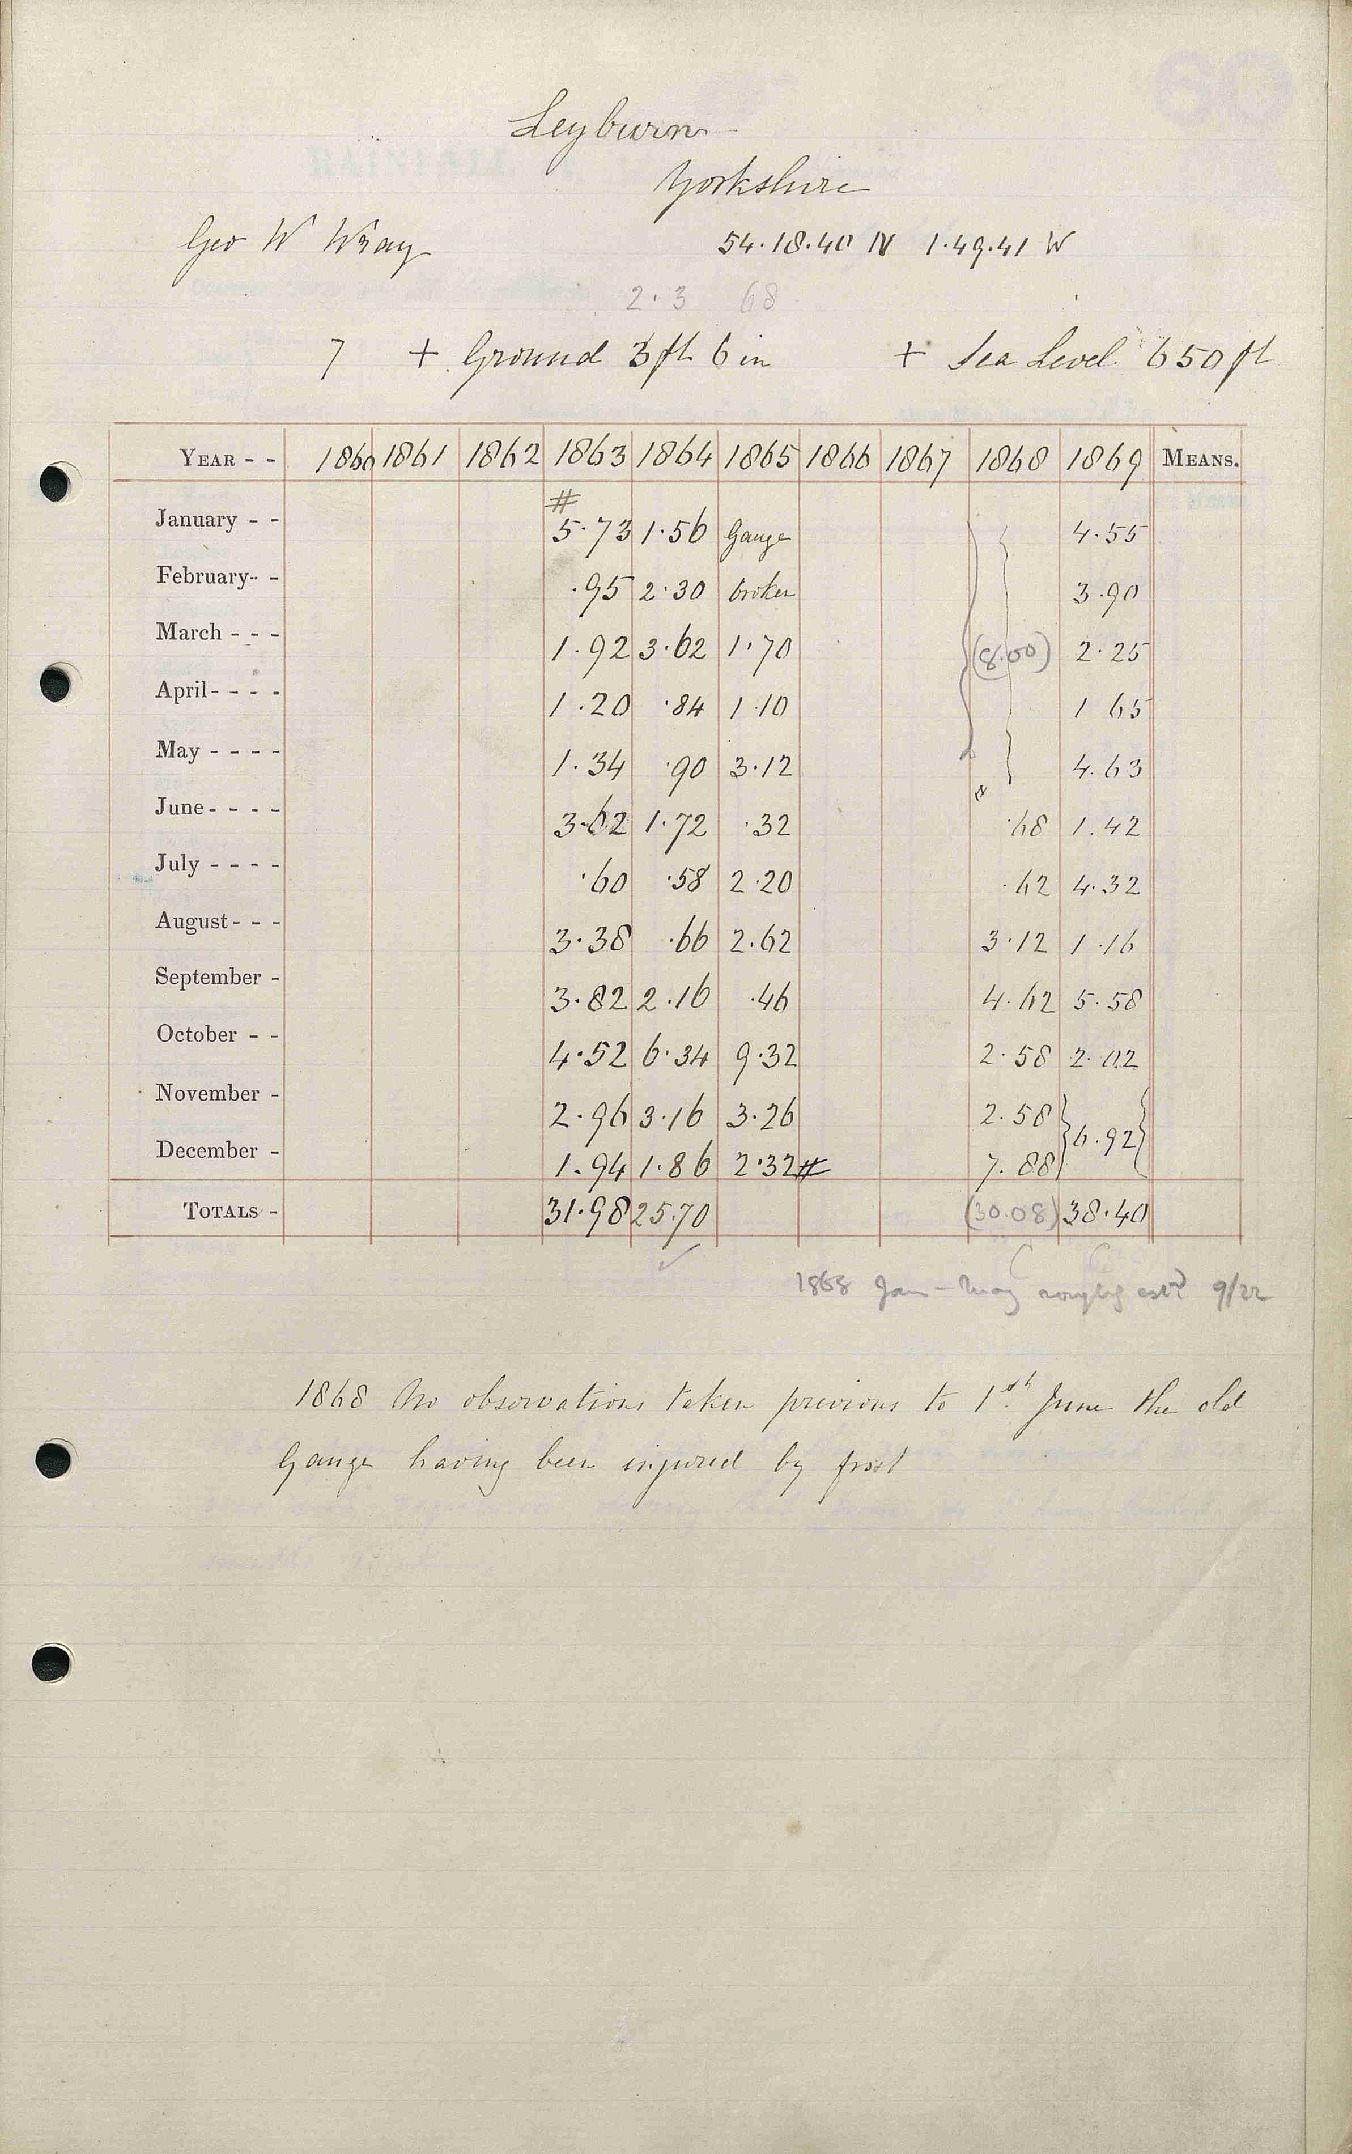 Leyburn
Yorkshire
Geo W Wray 54.18.40 N 1.49.41 W
2.3 68
7 + Ground 3 ft 6 in + Sea Level 650 ft
YEAR - - 1860 1861 1862 1863 1864 1865 1866 1867 1868 1869 MEANS.
#
January - - 5.73 1.56 Gauge 4.55
February - - .95 2.30 broken 3.90
March - - - 1.92 3.62 1.70 (8.00) 2.25
April - - - - 1.20 .84 1.10 1 65
May - - - - 1.34 .90 3.12 4.63
June - - - - 3.62 1.72 .32 .68 1.42
July - - - - .60 .58 2.20 .62 4.32
August - - - 3.38 .66 2.62 3.12 1.16
September - 3.82 2.16 .46 4.62 5.58
October - - 4.52 6.34 9.32 2.58 2.02
November - 2.96 3.16 3.26 2.58 } 6.92 }
December - 1.94 1.86 2.32 # 7.88
TOTALS - 31.98 25.70 (30.08) 38.40
1868 Jan - May roughly estd 9/22
1868 No observations taken previous to 1st June the old
Gauge having been injured by frost